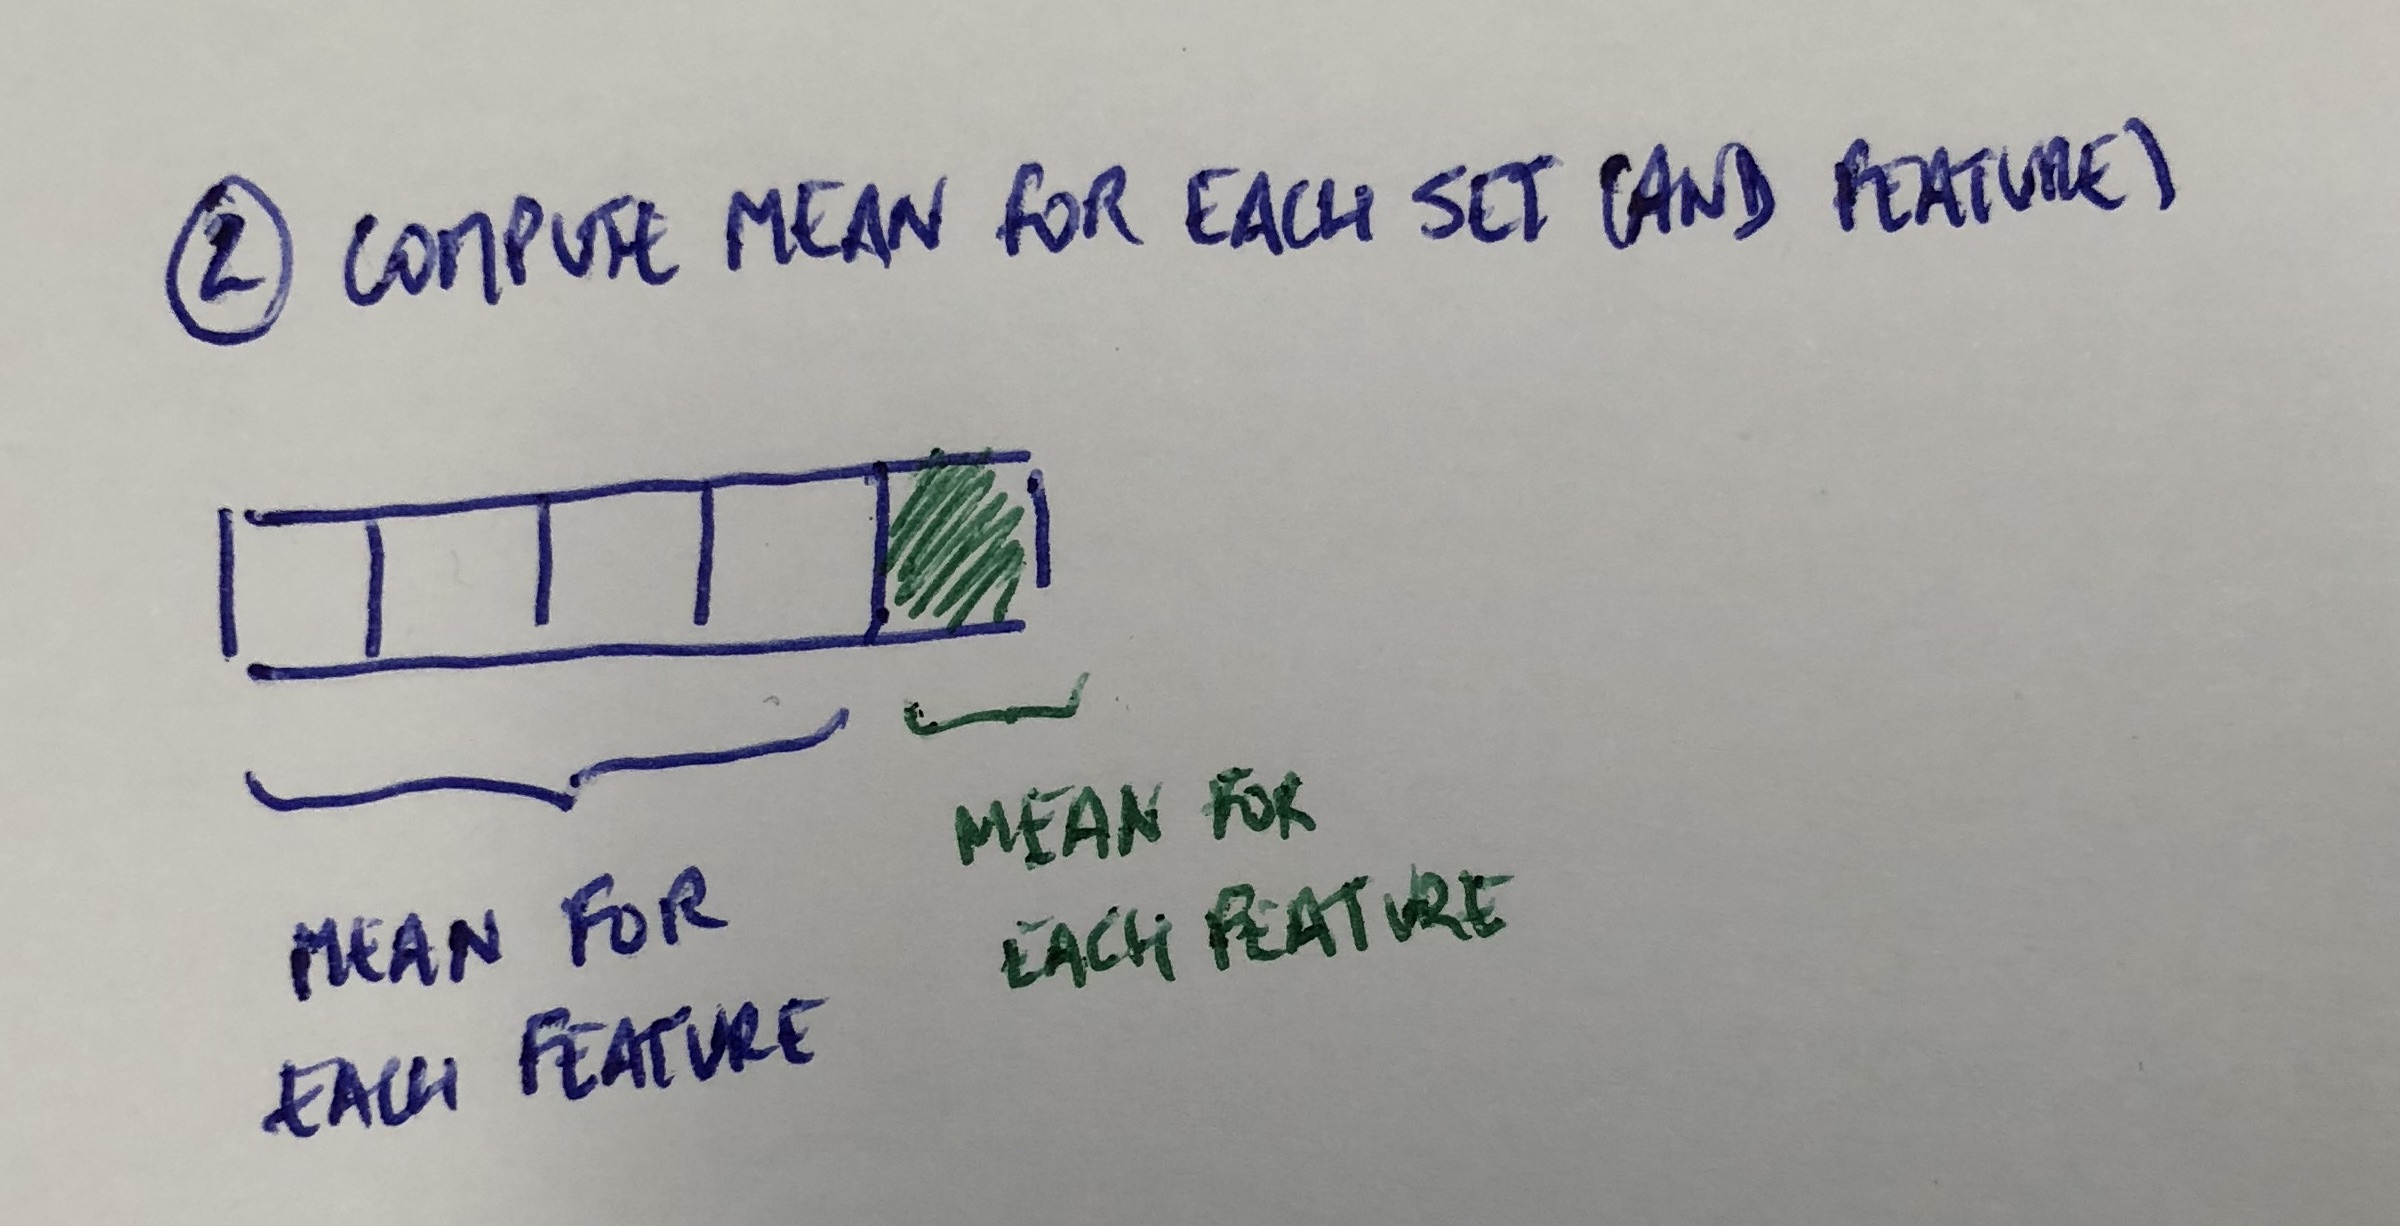 2 COMPUTE MEAN FOR EACH SET (AND FEATURE)
MEAN FOR
EACH FEATURE
MEAN FOR
EACH FEATURE